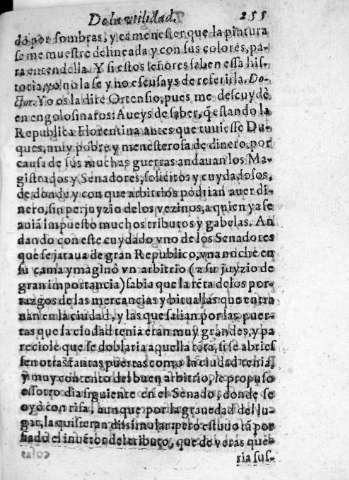 De la utilidad. 255
do por sombras, y es menester que la pintura
se me muestre delineada y con sus colores, pa-
ra entendella. Y si estos señores saben essa his-
toria, yo no la se y no escusays de referirla. Do-
ctor. Yo os la dire Ortensio, pues me descuydè
en engolosinaros: Aueys de saber, q̃ estando la
Republica Florentina antes que tuuiesse Du-
ques, muy pobre y menesterosa de dinero, por
causa de sus muchas guerras andauan los Ma-
gistrados y Senadores, solicitos y cuydadosos,
de donde y con que arbitrios podrian auer di-
nero, sin perjuyzio de los vezinos, a quien ya se
auiã impuesto muchos tributos y gabelas. An
dando con este cuydado vno de los Senadores
que se jataua de gran Republico, vna noche en
su cama ymaginò vn arbitrio (a su juyzio de
gran importancia) sabia que la rẽta de los por-
tazgos de las mercancias y bituallas que entra
uan en la ciudad, y las que salian por las puer-
tas que la ciudad tenia eran muy grandes, y pa
reciole que se doblaria aquella rẽta, si se abries
sen otras tantas puertas como la ciudad tenia,
y muy contento del buen arbitrio, le propuso
essotro dia siguiente en el Senado, donde se
oyò con risa, aunque por la grauedad del lu-
gar, la quisieran dissimular: pero estudo tã por
hado el inuẽtor del tributo, que de veras que-
ria sus-